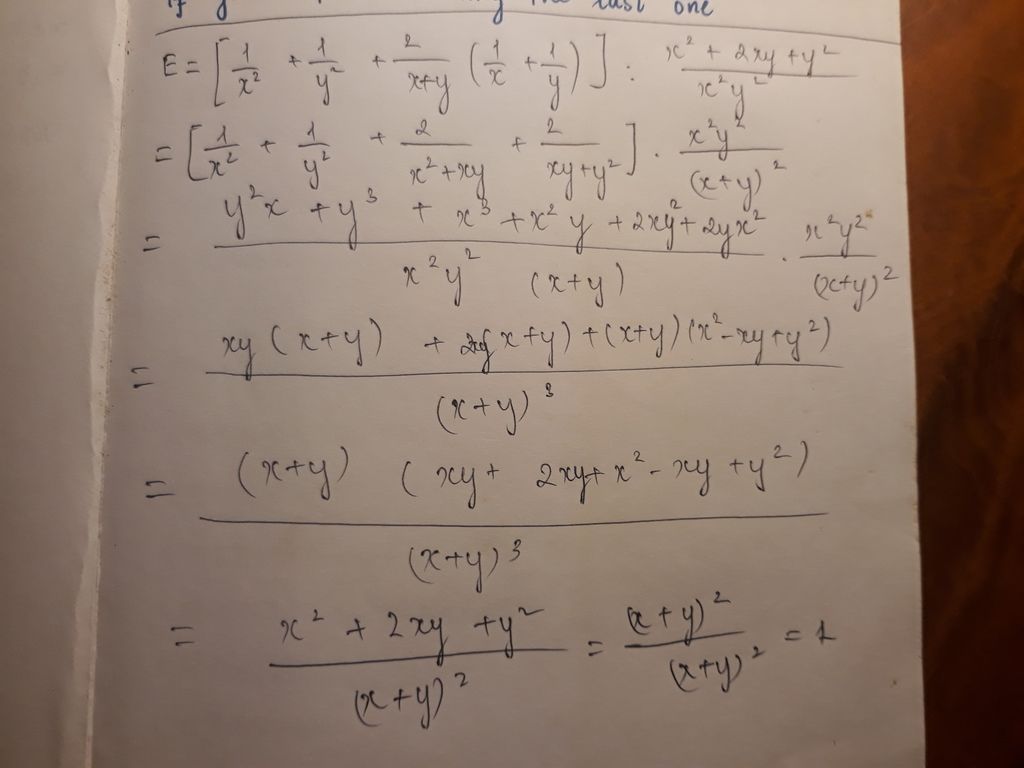 the last one
E = [1/x² + 1/y² + 2/(x+y) (1/x + 1/y)] : (x² + 2xy + y²)/(x²y²)
= [1/x² + 1/y² + 2/(x²+xy) + 2/(xy+y²)] · x²y²/(x+y)²
= (y²x + y³ + x³ + x²y + 2xy² + 2yx²)/(x²y² (x+y)) · x²y²/(x+y)²
= (xy(x+y) + 2xy(x+y) + (x+y)(x²-xy+y²))/(x+y)³
= ((x+y) (xy + 2xy + x² - xy + y²))/(x+y)³
= (x² + 2xy + y²)/(x+y)² = (x+y)²/(x+y)² = 1